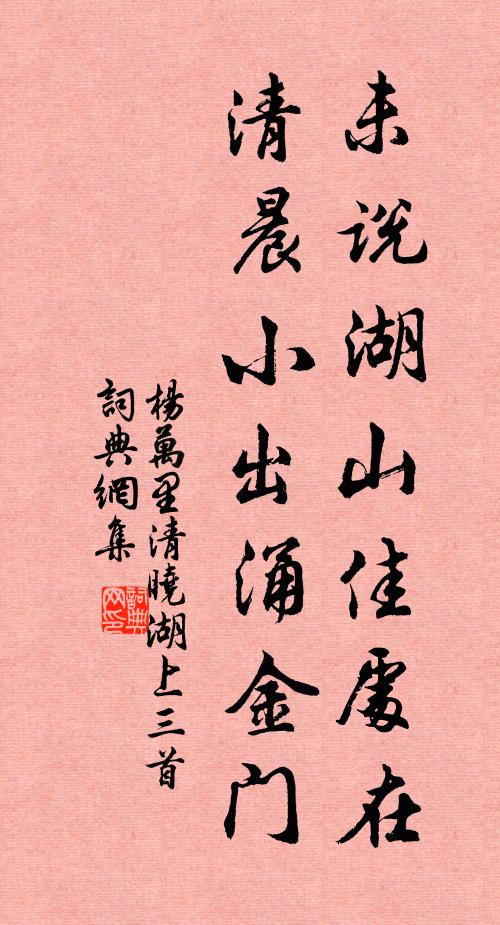 未説湖山佳處在
清晨小出涌金门
楊萬里清曉湖上三首
詞典網集
詞典网印